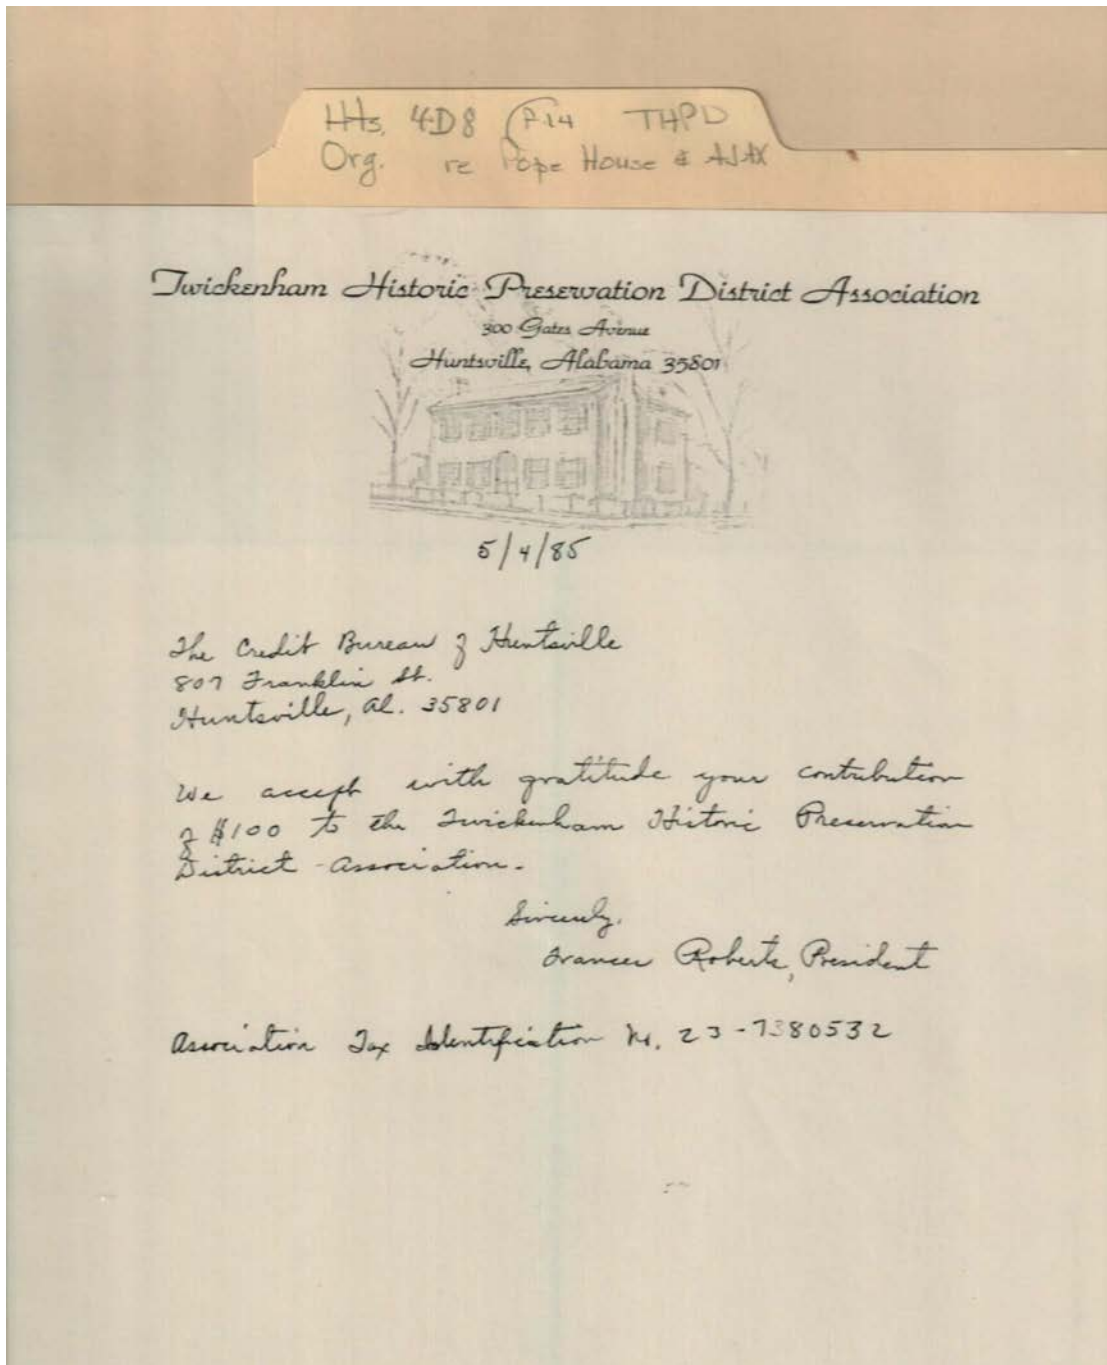 Hts. 4-D8 F-14 THPD
Org. re Pope House & AJAX
Twickenham Historic Preservation District Association
300 Gates Avenue
Huntsville, Alabama 35801
5/4/85
The Credit Bureau of Huntsville
807 Franklin St.
Huntsville, Al. 35801
We accept with gratitude your contribution
of $100 to the Twickenham Historic Preservation
District Association.
Sincerely,
Frances Roberts, President
Association Tax Identification No. 23-7380532